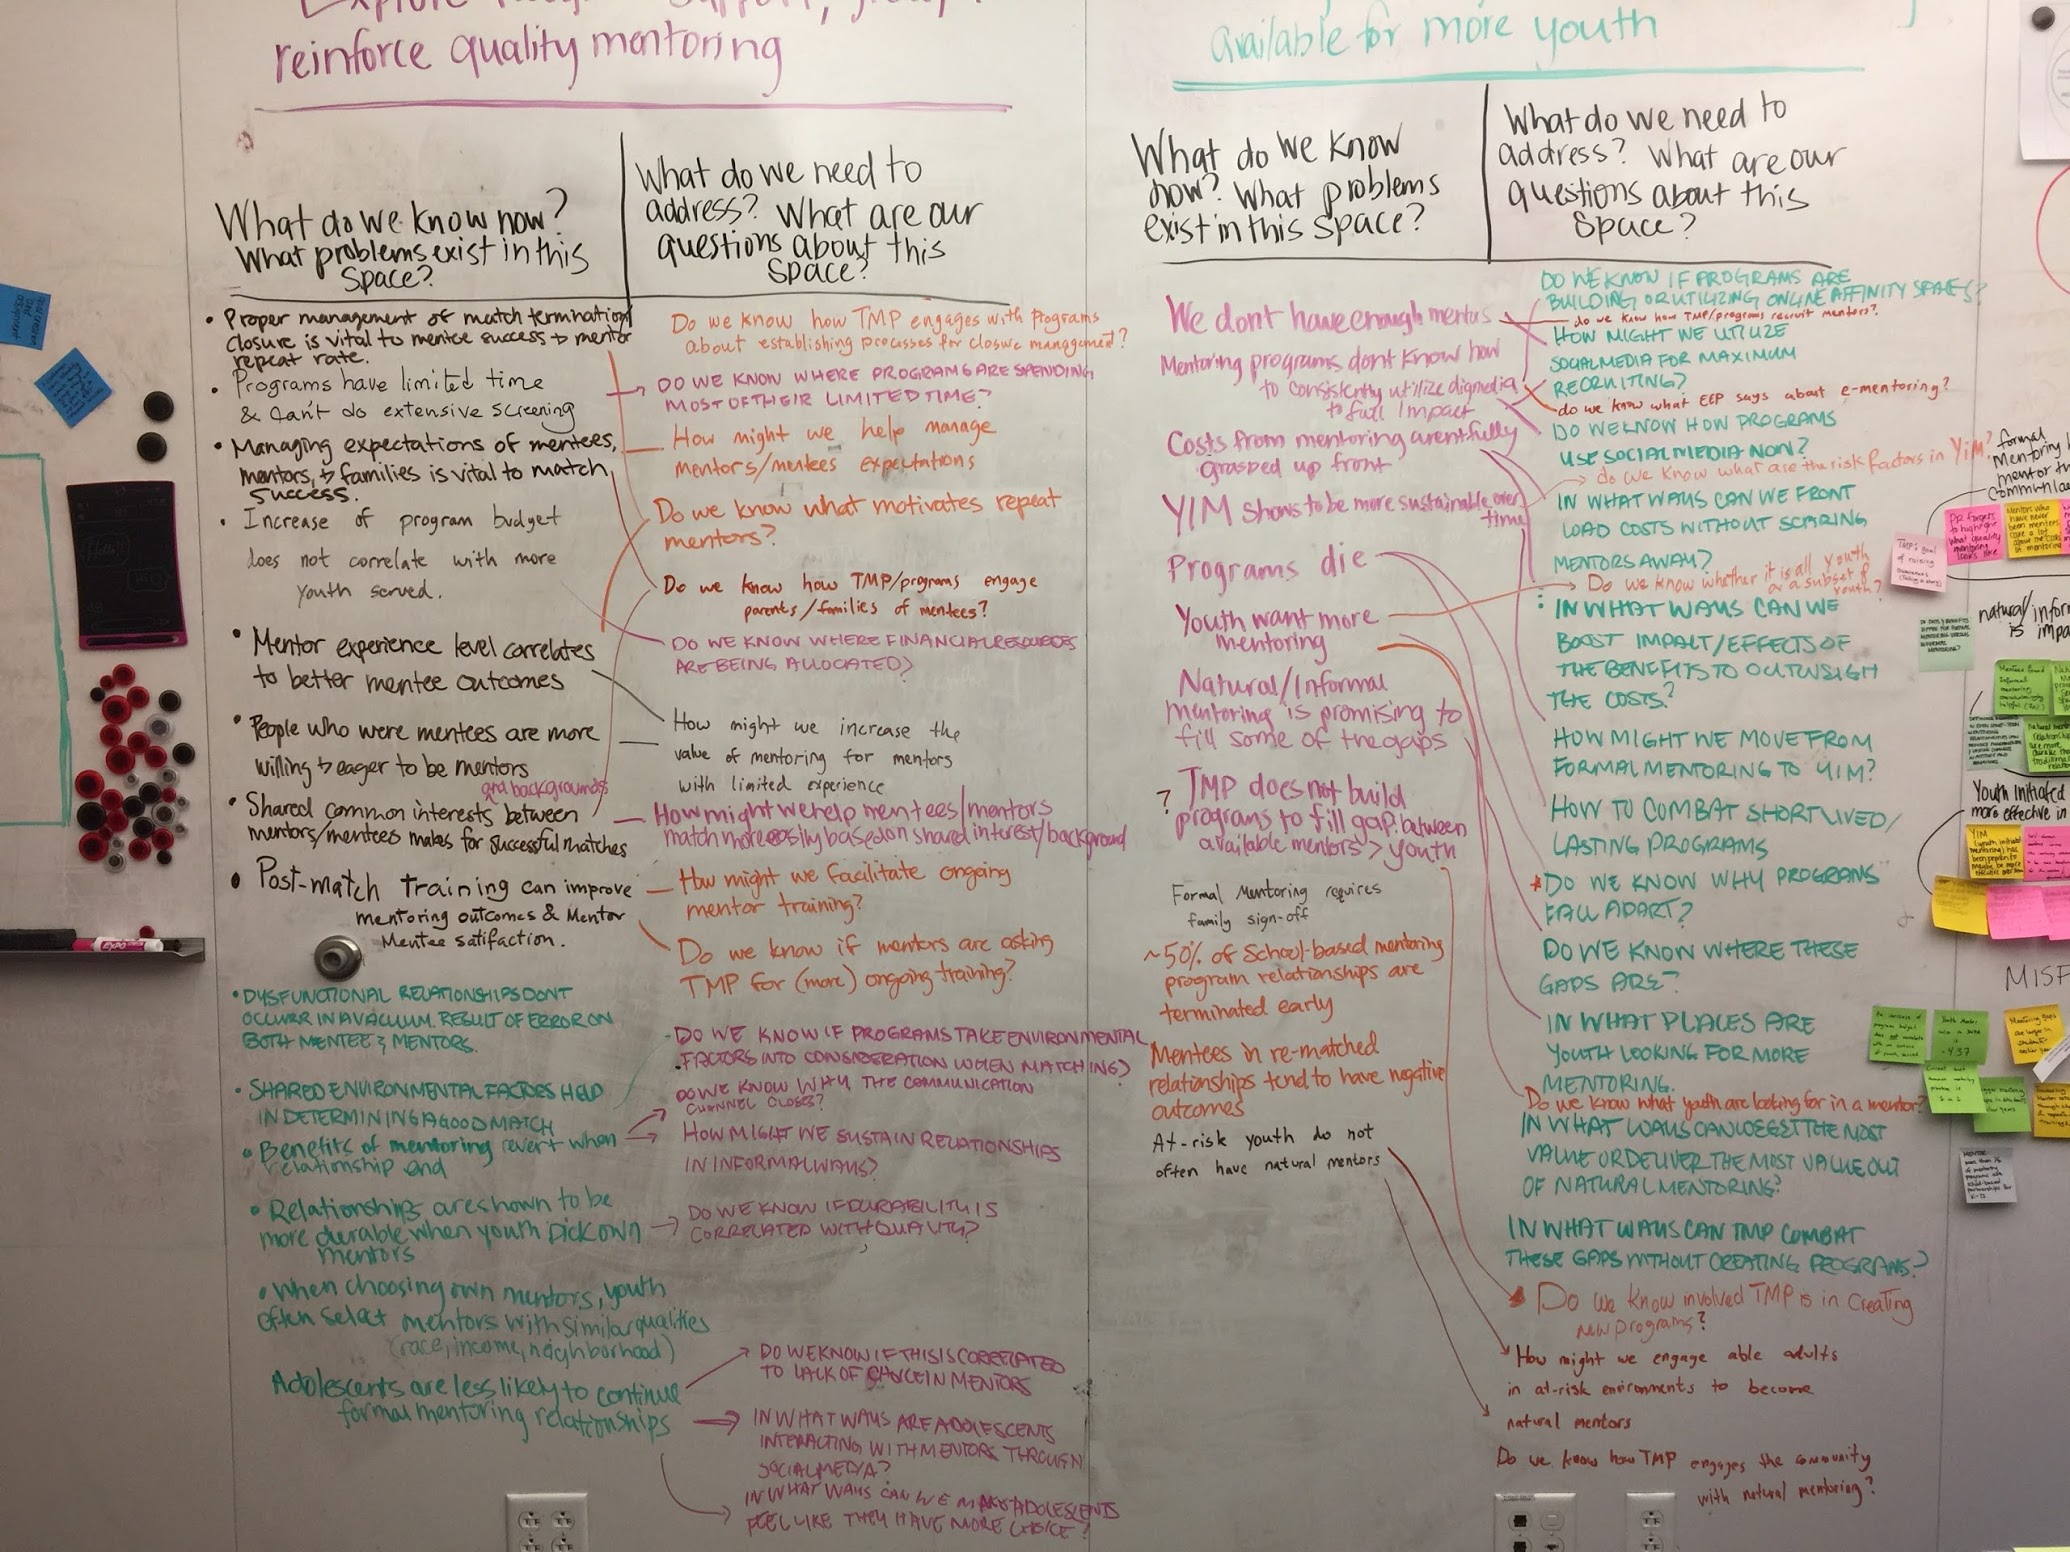 reinforce quality mentoring
What do we know now?
What problems exist in this
Space?
What do we need to
address? What are our
questions about this
space?
• Proper management of match termination/
closure is vital to mentee success + mentor
repeat rate.
• Programs have limited time
& can't do extensive screening
• Managing expectations of mentees,
mentors, + families is vital to match
success.
• Increase of program budget
does not correlate with more
youth served.
• Mentor experience level correlates
to better mentee outcomes
• People who were mentees are more
willing + eager to be mentors
and backgrounds
• Shared common interests between
mentors/mentees makes for successful matches
• Post-match training can improve
mentoring outcomes & Mentor
Mentee satifaction.
• DYSFUNCTIONAL RELATIONSHIPS DONT
OCCURR IN A VACUUM. RESULT OF ERROR ON
BOTH MENTEE & MENTORS.
• SHARED ENVIRONMENTAL FACTORS HELP
IN DETERMINING A GOOD MATCH
• Benefits of mentoring revert when
relationship end
• Relationships are shown to be
more durable when youth pick own
mentors
• When choosing own mentors, youth
often select mentors with similar qualities
(race, income, neighborhood)
Adolescents are less likely to continue
formal mentoring relationships
Do we know how TMP engages with programs
about establishing processes for closure management?
DO WE KNOW WHERE PROGRAMS ARE SPENDING
MOST OF THEIR LIMITED TIME?
How might we help manage
mentors/mentees expectations
Do we know what motivates repeat
mentors?
Do we know how TMP/programs engage
parents/families of mentees?
DO WE KNOW WHERE FINANCIAL RESOURCES
ARE BEING ALLOCATED?
How might we increase the
value of mentoring for mentors
with limited experience
How might we help mentees/mentors
match more easily based on shared interest/background
How might we facilitate ongoing
mentor training?
Do we know if mentors are asking
TMP for (more) ongoing training?
DO WE KNOW IF PROGRAMS TAKE ENVIRONMENTAL
FACTORS INTO CONSIDERATION WHEN MATCHING?
DO WE KNOW WHY THE COMMUNICATION
CHANNEL CLOSES?
HOW MIGHT WE SUSTAIN RELATIONSHIPS
IN INFORMAL WAYS?
DO WE KNOW IF DURABILITY IS
CORRELATED WITH QUALITY?
DO WE KNOW IF THIS IS CORRELATED
TO LACK OF CHOICE IN MENTORS
IN WHAT WAYS ARE ADOLESCENTS
INTERACTING WITH MENTORS THROUGH
SOCIAL MEDIA?
IN WHAT WAYS CAN WE MAKE ADOLESCENTS
FEEL LIKE THEY HAVE MORE CHOICE?
available for more youth
What do we know
now? What problems
exist in this space?
What do we need to
address? What are our
questions about this
space?
We dont have enough mentors
Mentoring programs dont know how
to consistently utilize digmedia
to full impact
Costs from mentoring arent fully
grasped up front
YIM shows to be more sustainable over
time
Programs die
Youth want more
mentoring
Natural/Informal
mentoring is promising to
fill some of the gaps
? TMP does not build
programs to fill gap between
available mentors > youth
Formal Mentoring requires
family sign-off
~50% of School-based mentoring
program relationships are
terminated early
Mentees in re-matched
relationships tend to have negative
outcomes
At-risk youth do not
often have natural mentors
DO WE KNOW IF PROGRAMS ARE
BUILDING OR UTILIZING ONLINE AFFINITY SPACES?
do we know how TMP/programs recruit mentors?
HOW MIGHT WE UTILIZE
SOCIAL MEDIA FOR MAXIMUM
RECRUITING?
do we know what EEP says about e-mentoring?
DO WE KNOW HOW PROGRAMS
USE SOCIAL MEDIA NOW?
do we know what are the risk factors in YiM?
IN WHAT WAYS CAN WE FRONT
LOAD COSTS WITHOUT SCARING
MENTORS AWAY?
Do we know whether it is all youth
or a subset of
youth?
IN WHAT WAYS CAN WE
BOOST IMPACT/EFFECTS OF
THE BENEFITS TO OUTWEIGH
THE COSTS?
HOW MIGHT WE MOVE FROM
FORMAL MENTORING TO YIM?
HOW TO COMBAT SHORT LIVED/
LASTING PROGRAMS
* DO WE KNOW WHY PROGRAMS
FALL APART?
DO WE KNOW WHERE THESE
GAPS ARE?
IN WHAT PLACES ARE
YOUTH LOOKING FOR MORE
MENTORING.
Do we know what youth are looking for in a mentor?
IN WHAT WAYS CAN WE GET THE MOST
VALUE OR DELIVER THE MOST VALUE OUT
OF NATURAL MENTORING?
IN WHAT WAYS CAN TMP COMBAT
THESE GAPS WITHOUT CREATING PROGRAMS?
Do we know involved TMP is in creating
new programs?
How might we engage able adults
in at-risk environments to become
natural mentors
Do we know how TMP engages the community
with natural mentoring?
formal
mentoring
mentor
PR forgets
to highlight
what quality
mentoring
looks like
Mentors who
have never
been mentees
care a lot
about the costs
of mentoring
TMP's goal
of raising
natural/inform
is impa
Youth Initiated
more effective in
MISF
EXPO